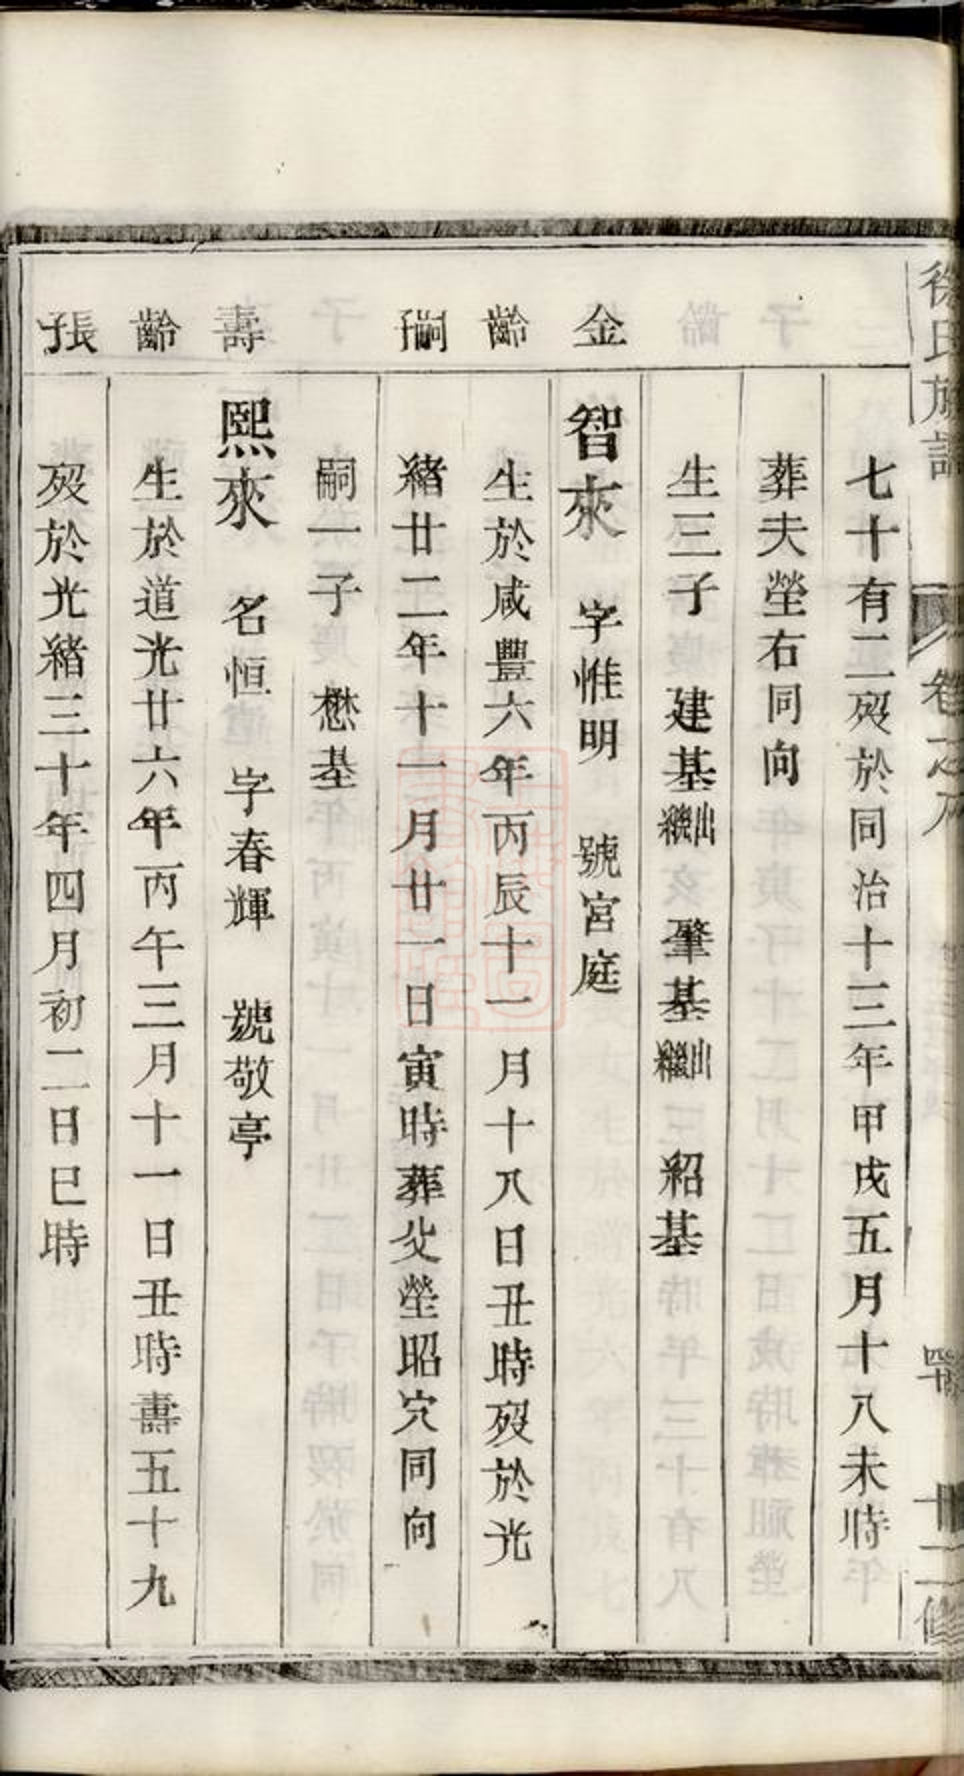 徐氏族譜
七十有二歿於同治十三年甲戌五月十八未時
葬夫塋右同向
生三子　建基出繼　肇基出繼　紹基
金
智來　字惟明　號宮庭
齡　生於咸豐六年丙辰十一月十八日丑時歿於光
嗣　緒廿二年十一月廿一日寅時葬父塋昭穴同向
嗣一子　懋基
壽
熙來　名恒　字春輝　號敬亭
齡　生於道光廿六年丙午三月十一日丑時壽五十九
張　歿於光緒三十年四月初二日巳時